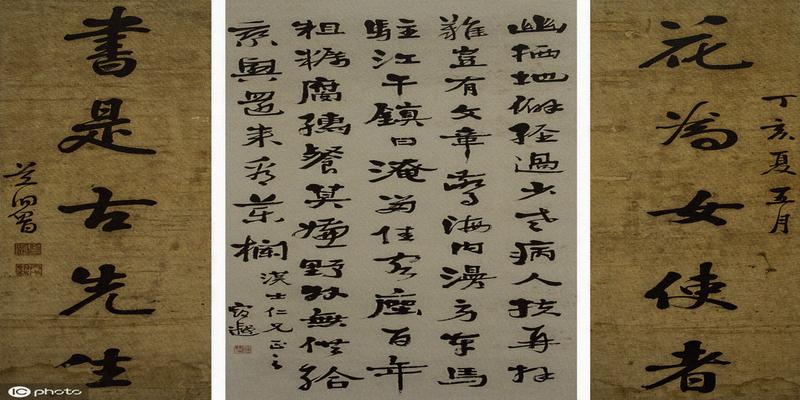 丁亥夏五月
花為女使者
幽栖地僻經過少老病人扶再拜
難豈有文章驚海内漫勞車馬
駐江干鎮日淹留佳客座百年
粗糲腐儒餐莫嫌野外無供給
乘興還來看藥欄
漢士仁兄正之
書是古先生
IC photo